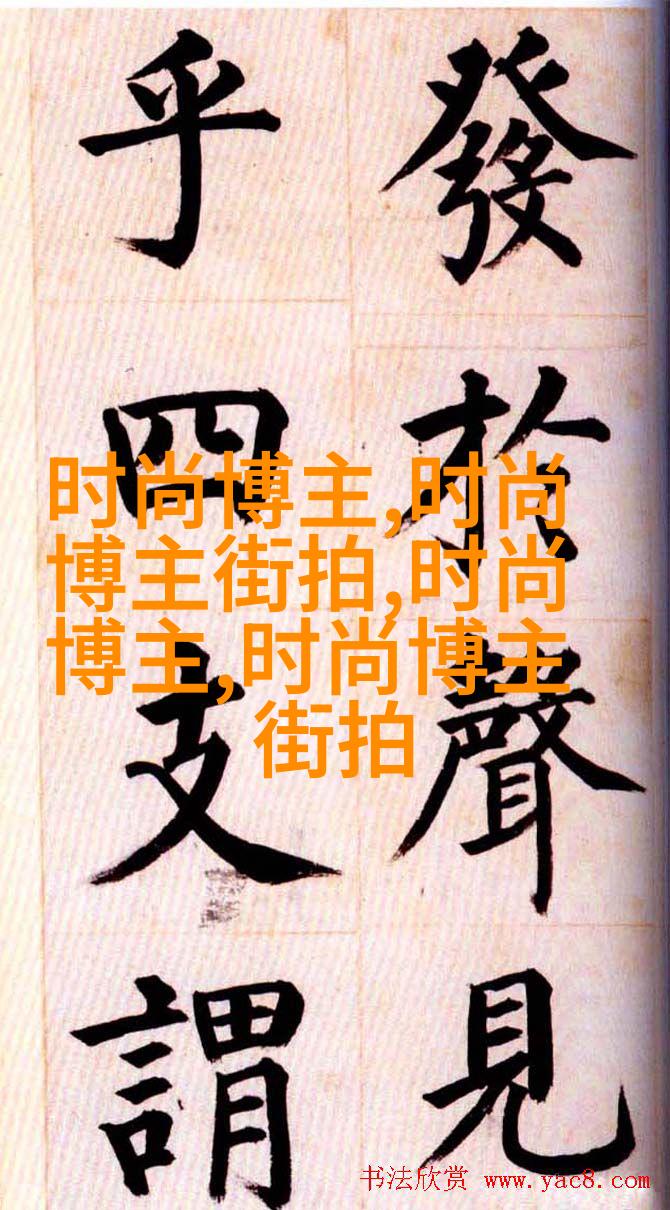 發於聲見
乎四支謂
时尚博主,时尚
博主街拍,时尚
博主,时尚博主
街拍
书法欣赏 www.yac8.com